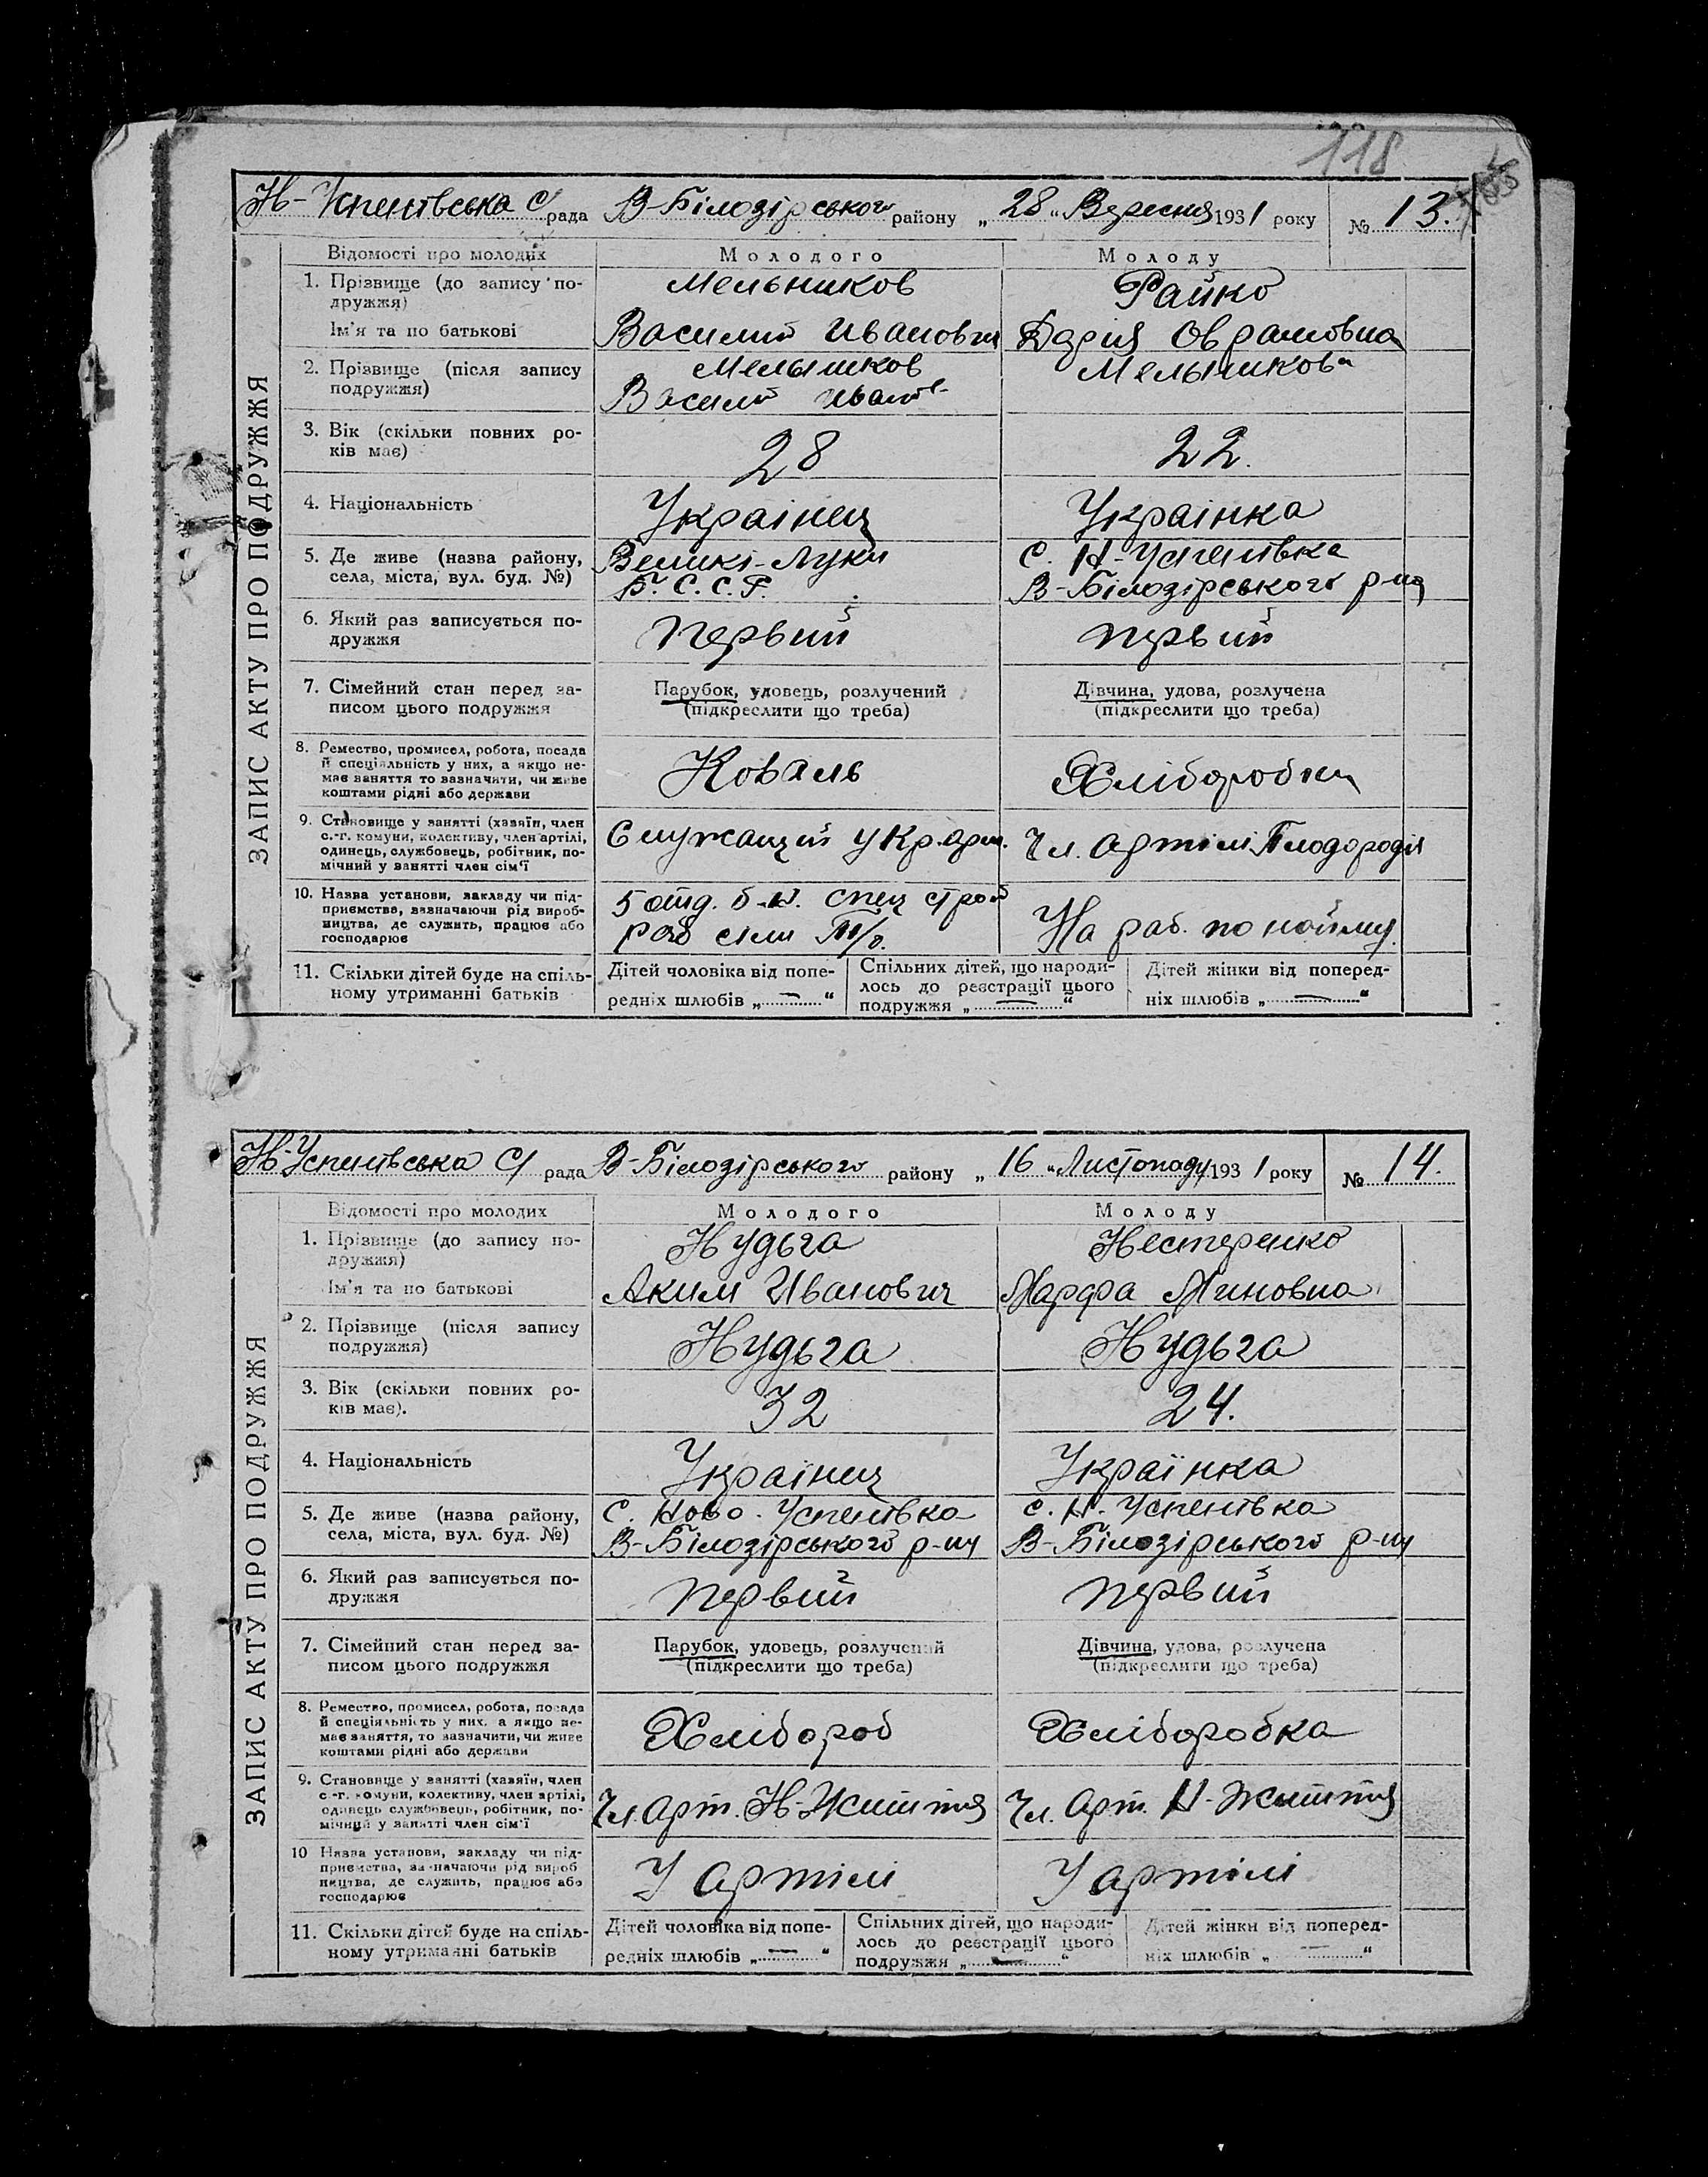 118
Н-Успенівська с/рада В-Білозірського району „28“ Вересня 1931 року № 13.
ЗАПИС АКТУ ПРО ПОДРУЖЖЯ
Відомості про молодих Молодого Молоду
1. Прізвище (до запису по-
дружжя) Мельников Райко
Ім'я та по батькові Василий Иванович Дарія Оврамовна
2. Прізвище (після запису
подружжя) Мельников Мельникова
Василий Иванов-
3. Вік (скільки повних ро-
ків має) 28 22.
4. Національність Українец Українка
5. Де живе (назва району, Великі-Луки с. Н-Успенівка
села, міста, вул. буд. №) Б.С.С.Р. В-Білозірського р-ну
6. Який раз записується по-
дружжя Первий первий
7. Сімейний стан перед за- Парубок, удовець, розлучений Дівчина, удова, розлучена
писом цього подружжя (підкреслити що треба) (підкреслити що треба)
8. Ремество, промисел, робота, посада
й спеціяльність у них, а якщо не-
має заняття то зазначити, чи живе
коштами рідні або держави Коваль Хліборобка
9. Становище у занятті (хазяїн, член
с.-г. комуни, колективу, член артілі,
одинець, службовець, робітник, по-
мічний у занятті член сім'ї Служащий у Кр. арм. Чл. артілі Плодородія
10. Назва установи, закладу чи під-
приємства, зазначаючи рід вироб-
ництва, де служить, працює або
господарює 5 отд. б-н. спец строй
раб На раб. по найму.
11. Скільки дітей буде на спіль- Дітей чоловіка від попе- Спільних дітей, що народи- Дітей жінки від поперед-
ному утриманні батьків редніх шлюбів „—“ лось до реєстрації цього ніх шлюбів „—“
подружжя „—“
Н-Успенівська с/рада В-Білозірського району „16“ Листопаду 1931 року № 14.
ЗАПИС АКТУ ПРО ПОДРУЖЖЯ
Відомості про молодих Молодого Молоду
1. Прізвище (до запису по-
дружжя) Нудьга Нестеренко
Ім'я та по батькові Аким Иванович Марфа Миновна
2. Прізвище (після запису
подружжя) Нудьга Нудьга
3. Вік (скільки повних ро-
ків має). 32 24.
4. Національність Українец Українка
5. Де живе (назва району, с. Ново-Успенівка с. Н. Успенівка
села, міста, вул. буд. №) В-Білозірського р-ну В-Білозірського р-ну
6. Який раз записується по-
дружжя первий первий
7. Сімейний стан перед за- Парубок, удовець, розлучений Дівчина, удова, розлучена
писом цього подружжя (підкреслити що треба) (підкреслити що треба)
8. Ремество, промисел, робота, посада
й спеціяльність у них, а якщо не-
має заняття, то зазначити, чи живе
коштами рідні або держави Хлібороб Хліборобка
9. Становище у занятті (хазяїн, член
с.-г. комуни, колективу, член артілі,
одинець службовець, робітник, по-
мічний у занятті член сім'ї Чл. Арт. Н-Життя Чл. Арт. Н-Життя
10 Назва установи, закладу чи під-
приємства, зазначаючи рід вироб
ництва, де служить, працює або
господарює У артілі У артілі
11. Скільки дітей буде на спіль- Дітей чоловіка від попе- Спільних дітей, що народи- Дітей жінки від поперед-
ному утриманні батьків редніх шлюбів „—“ лось до реєстрації цього ніх шлюбів „—“
подружжя „—“